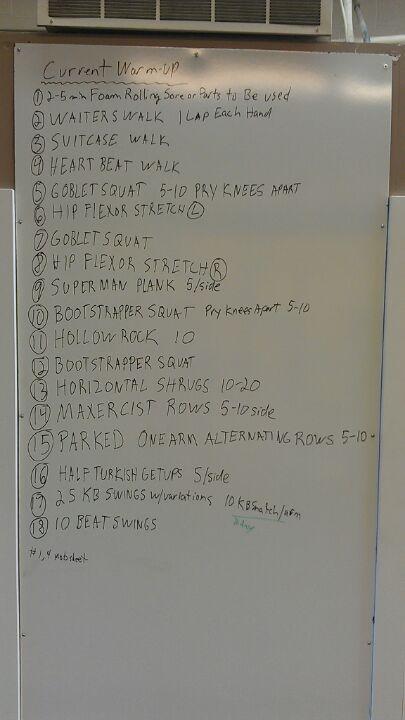 Current Warm-up
① 2-5 min Foam Rolling Sore or Parts to Be used
② WAITERS WALK 1 LAP Each Hand
③ SUITCASE WALK
④ HEART BEAT WALK
⑤ GOBLET SQUAT 5-10 PRY KNEES APART
⑥ HIP FLEXOR STRETCH Ⓛ
⑦ GOBLET SQUAT
⑧ HIP FLEXOR STRETCH Ⓡ
⑨ SUPERMAN PLANK 5/side
⑩ BOOTSTRAPPER SQUAT Pry Knees Apart 5-10
⑪ HOLLOW ROCK 10
⑫ BOOTSTRAPPER SQUAT
⑬ HORIZONTAL SHRUGS 10-20
⑭ MAXERCIST ROWS 5-10 side
⑮ PARKED ONE ARM ALTERNATING ROWS 5-10
⑯ HALF TURKISH GETUPS 5/side
⑰ 25 KB SWINGS w/variations 10 KB Snatch/arm
⑱ 10 BEAT SWINGS
#1,4